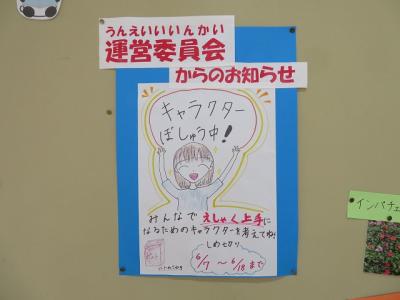 うんえいいいんかい
運営委員会
からのお知らせ
キャラクター
ぼしゅう中!
みんなで えしゃく上手に
なるためのキャラクターを考えてね!
しめ切り
6/7 ～ 6/18 まで
インパチェ